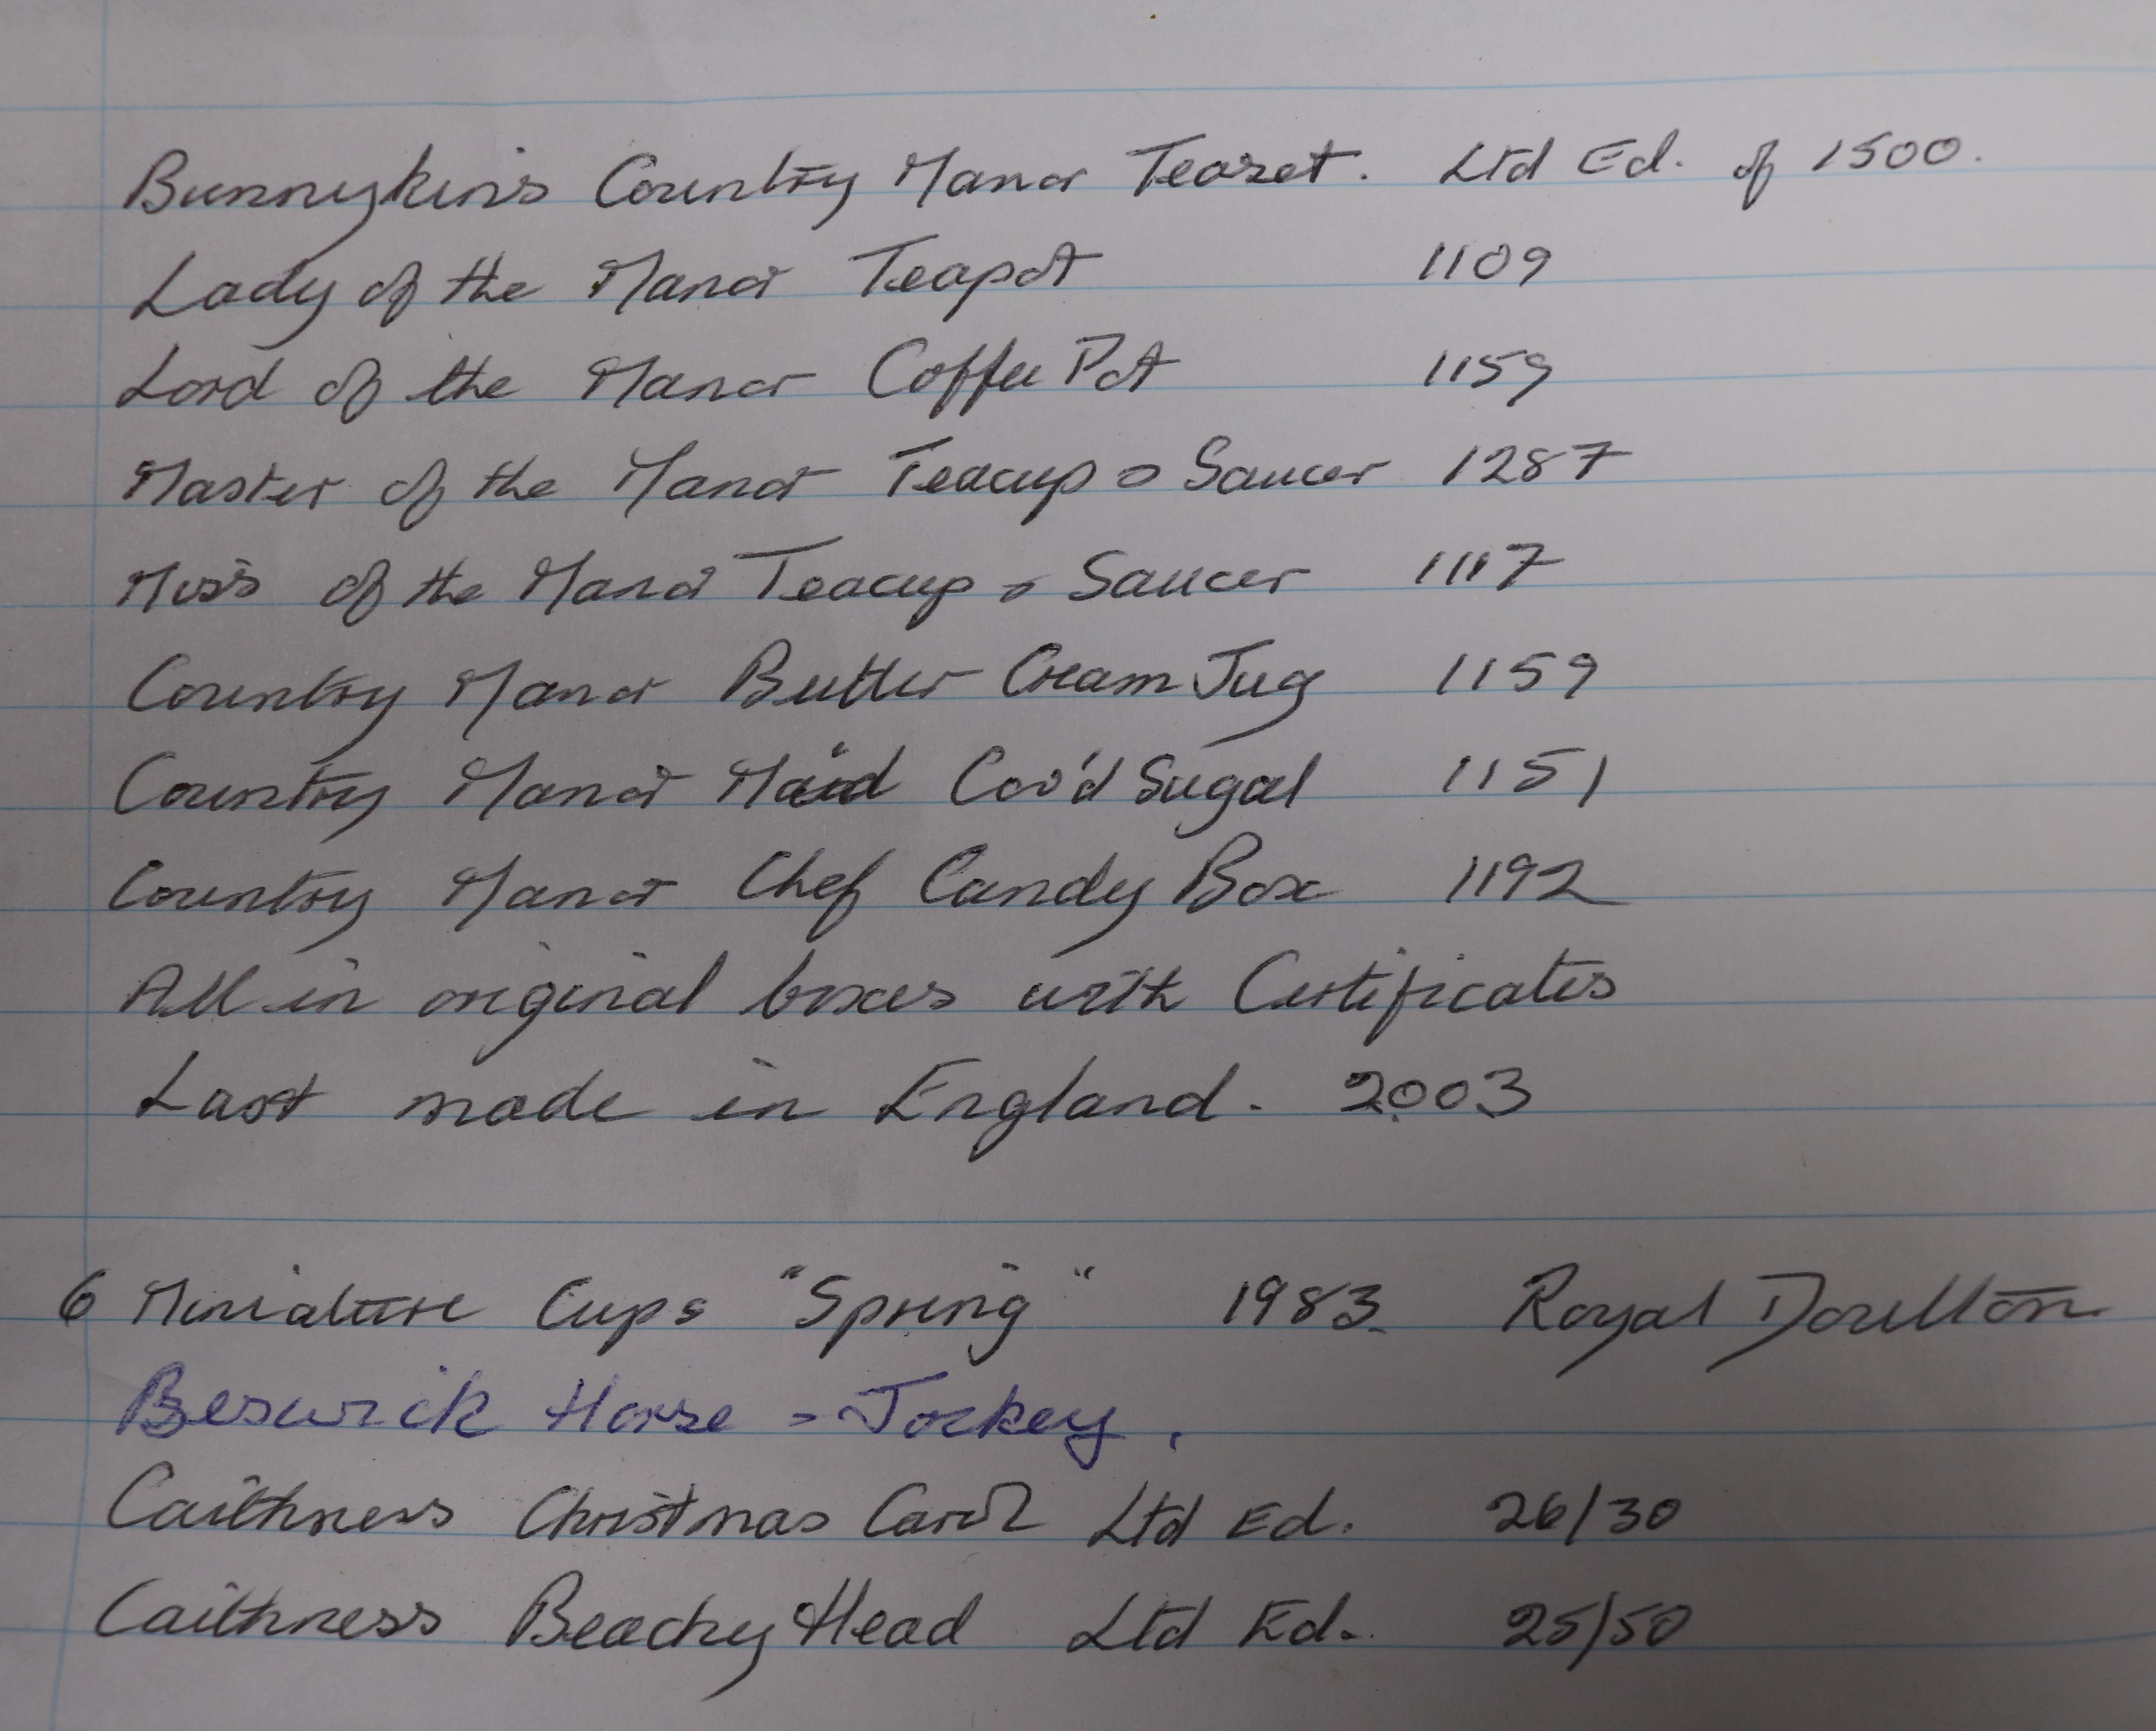 Bunnykins Country Manor Teaset. Ltd Ed. of 1500.
Lady of the Manor Teapot 1109
Lord of the Manor Coffee Pot 1159
Master of the Manor Teacup & Saucer 1287
Miss of the Manor Teacup & Saucer 1117
Country Manor Butler Cream Jug 1159
Country Manor Maid Cov'd Sugar 1151
Country Manor Chef Candy Box 1192
All in original boxes with Certificates
Last made in England. 2003
6 Miniature Cups "Spring" 1983. Royal Doulton
Beswick Horse & Jockey.
Caithness Christmas Carol Ltd Ed. 26/30
Caithness Beachy Head Ltd Ed. 25/50